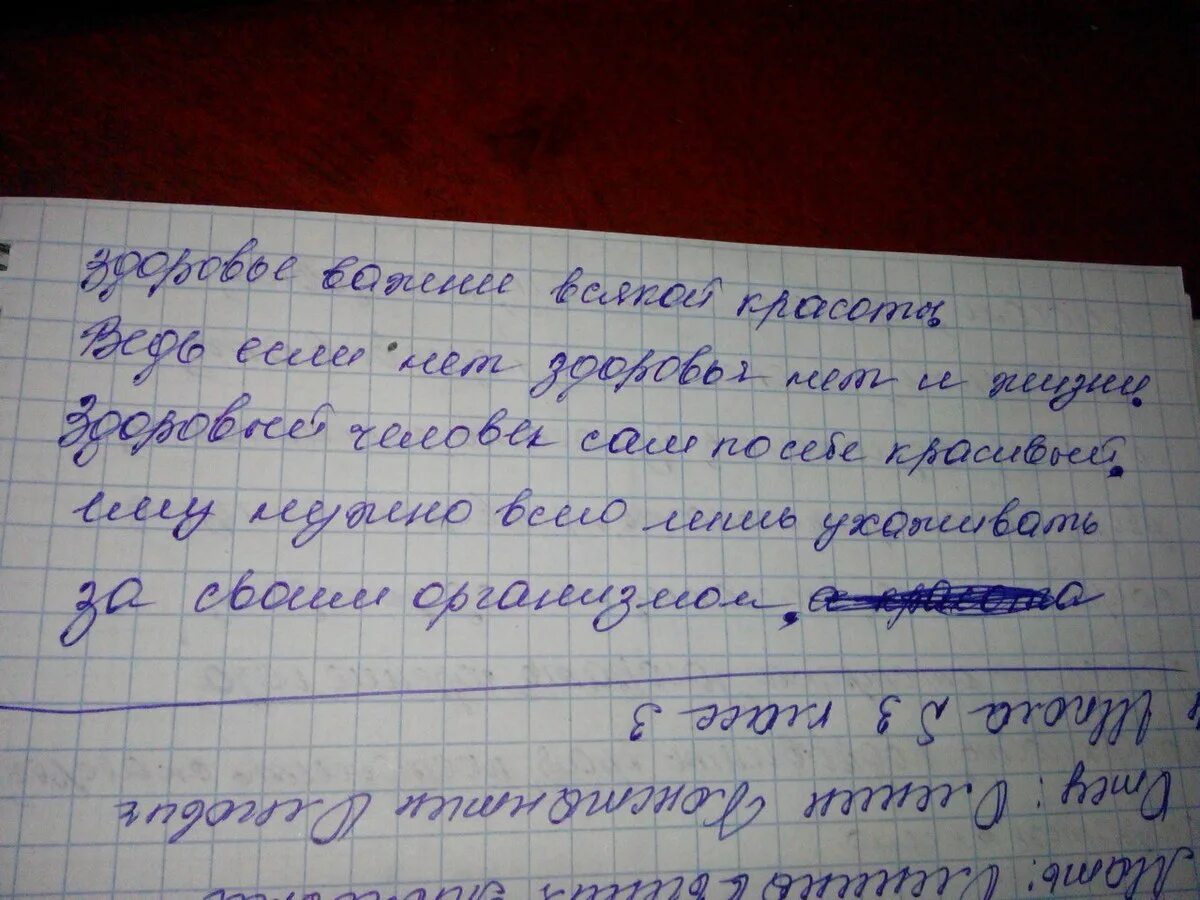 здоровье важнее всякой красоты
Ведь если нет здоровья нет и жизни.
Здоровый человек сам по себе красивый.
ему нужно всего лишь ухаживать
за своим организмом.
Школа 53 класс 3
Отец: Олегович
Мать: